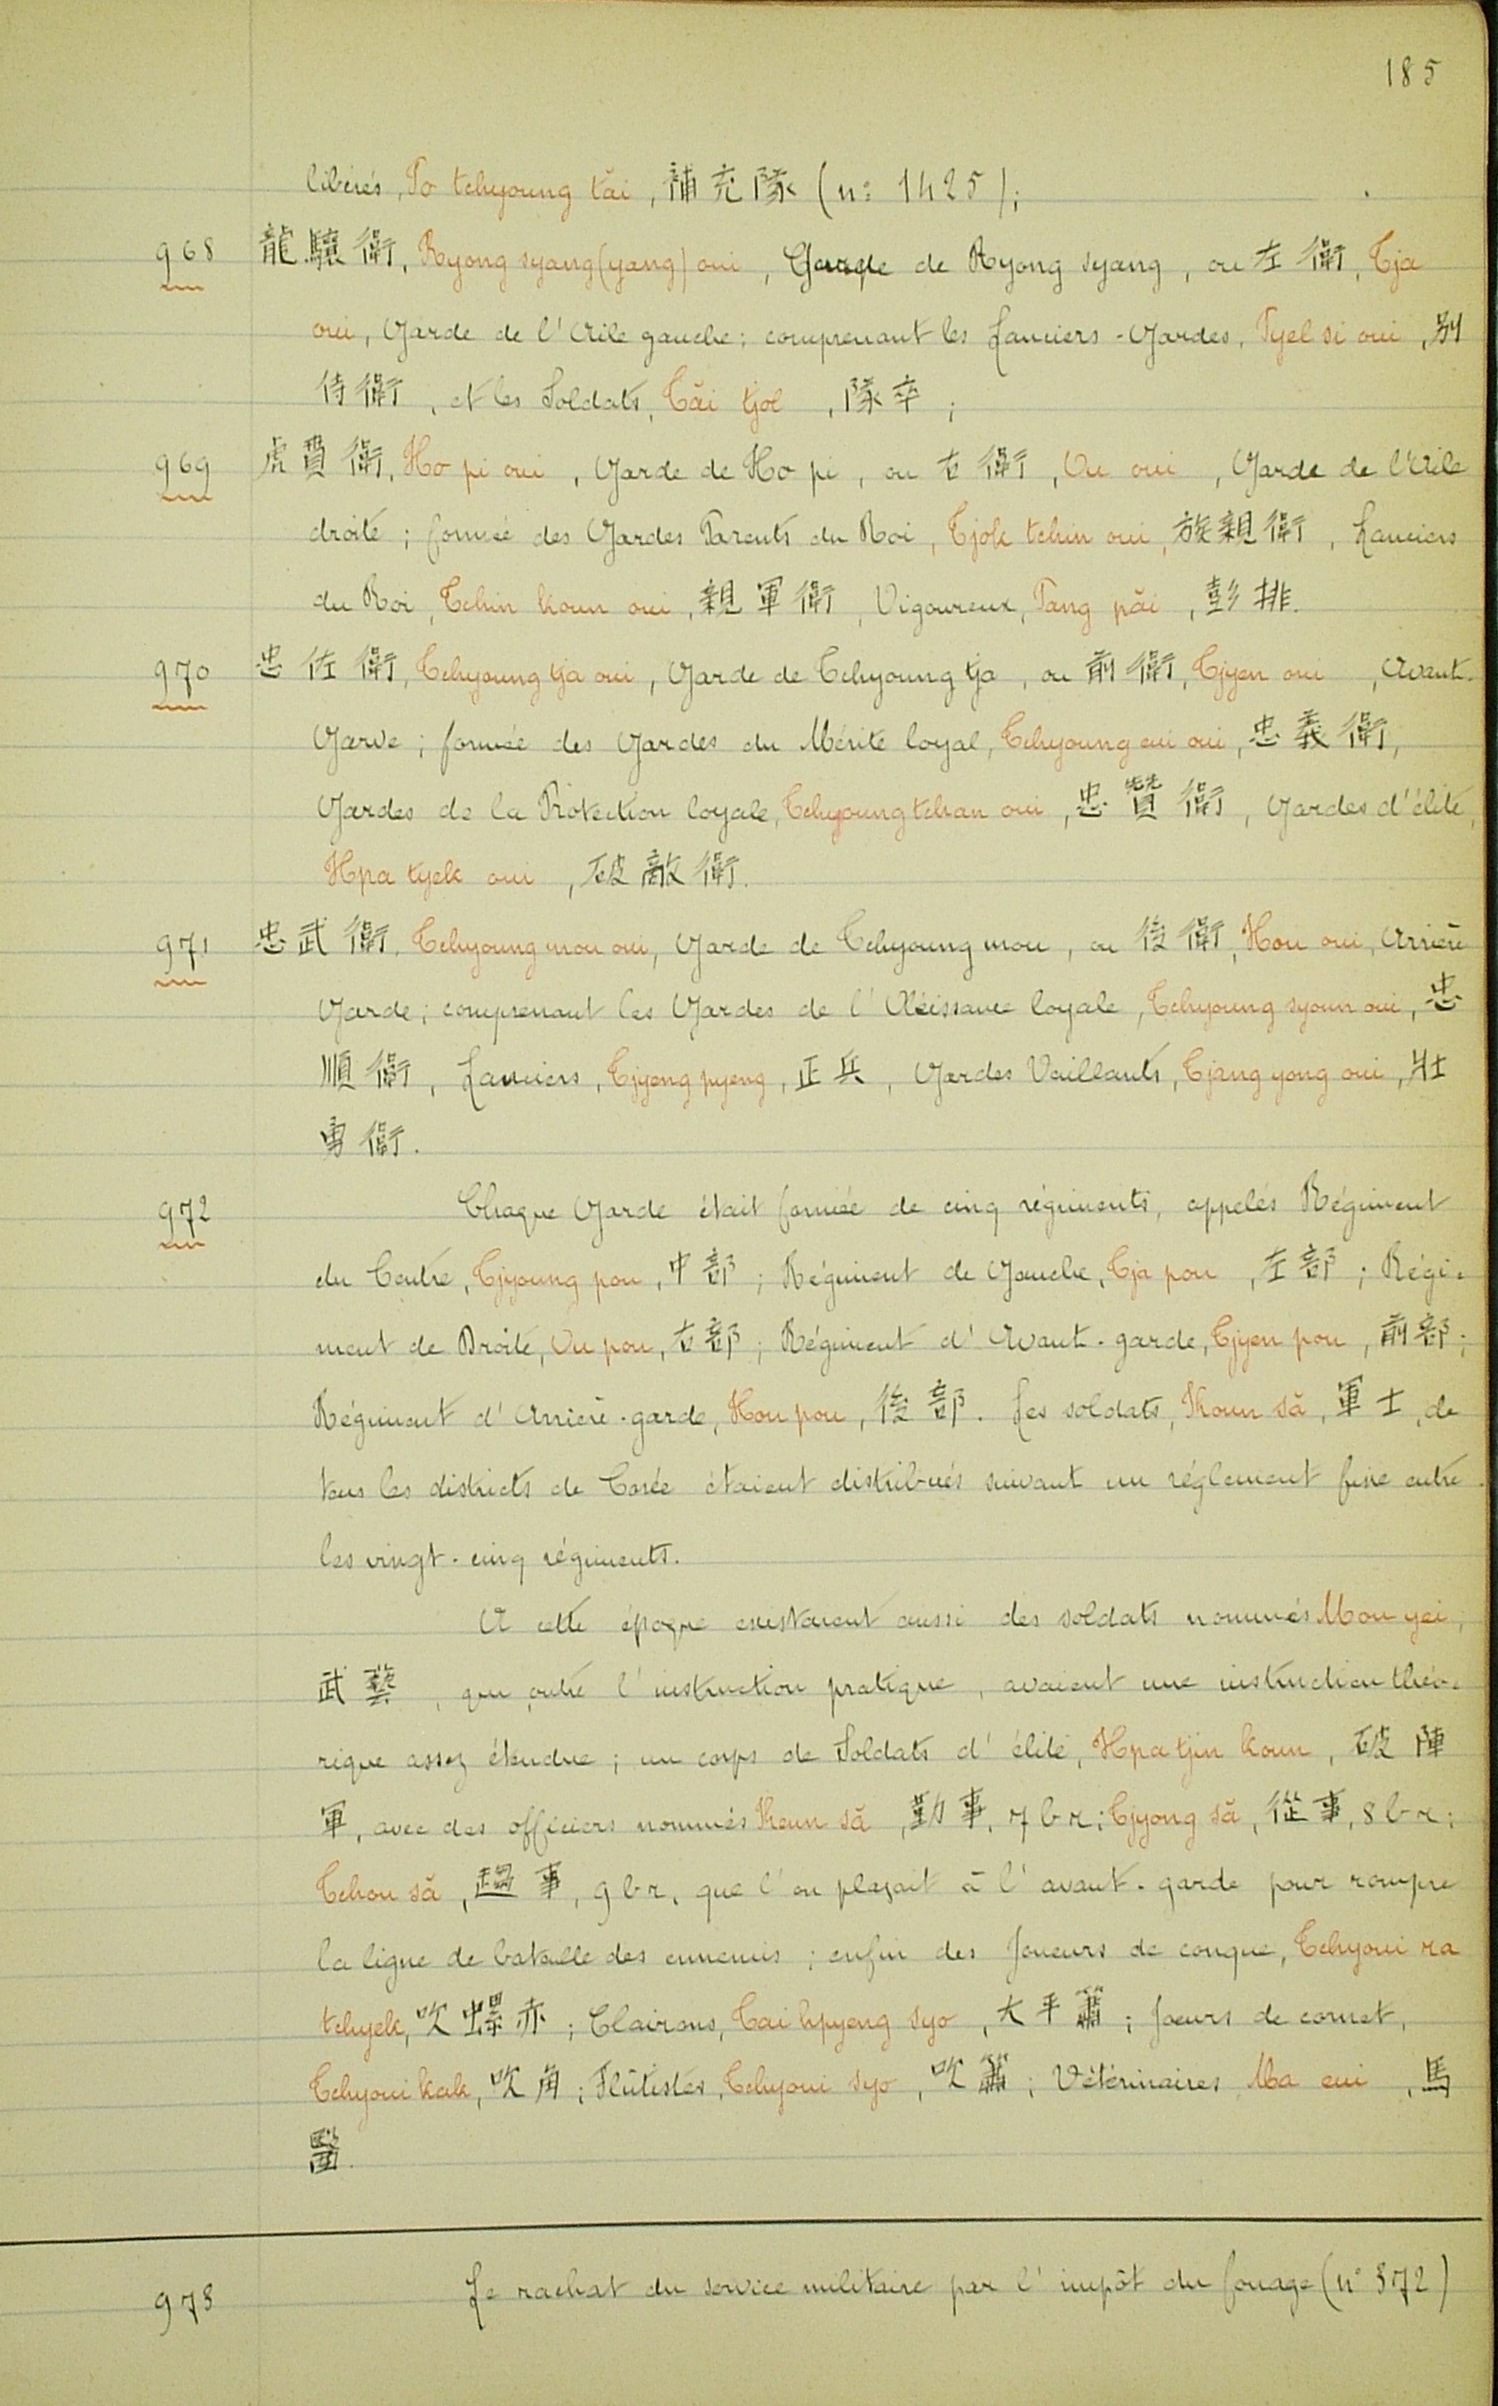 185
libérés, Po tchyoung tăi, 補充隊 (n° 1425);
968 龍驤衛, Ryong syang (yang) oui, Garde de Ryong syang, ou 左衛, Tja
oui, Garde de l'Aile gauche; comprenant les Lanciers-Gardes, Pyel si oui, 別
侍衛, et les Soldats, Tăi tjol, 隊卒;
969 虎賁衛, Ho pi oui, Garde de Ho pi, ou 右衛, Ou oui, Garde de l'Aile
droite; formée des Gardes Parents du Roi, Tjok tchin oui, 族親衛, Lanciers
du Roi, Tchin koun oui, 親軍衛, Vigoureux, Pang păi, 彭排.
970 忠佐衛, Tchyoung tja oui, Garde de Tchyoung tja, ou 前衛, Tjyen oui, Avant-
Garde; formée des Gardes du Mérite loyal, Tchyoung eui oui, 忠義衛,
Gardes de la Protection loyale, Tchyoung tchan oui, 忠贊衛, Gardes d'élite,
Hpa tyek oui, 破敵衛.
971 忠武衛, Tchyoung mou oui, Garde de Tchyoung mou, ou 後衛, Hou oui, Arrière
Garde; comprenant les Gardes de l'Obéissance loyale, Tchyoung syoun oui, 忠
順衛, Lanciers, Tjyeng pyeng, 正兵, Gardes Vaillants, Tjang yong oui, 壯
勇衛.
972 Chaque Garde était formée de cinq régiments, appelés Régiment
du Centre, Tjyoung pou, 中部; Régiment de Gauche, Tja pou, 左部; Régi-
ment de Droite, Ou pou, 右部; Régiment d'Avant-garde, Tjyen pou, 前部;
Régiment d'Arrière-garde, Hou pou, 後部. Les soldats, Koun să, 軍士, de
tous les districts de Corée étaient distribués suivant un réglement fixe entre
les vingt-cinq régiments.
A cette époque existaient aussi des soldats nommés Mou yei,
武藝, qui, outre l'instruction pratique, avaient une instruction théo-
rique assez étendue; un corps de Soldats d'élite, Hpa tjin koun, 破陣
軍, avec des officiers nommés Keun să, 勤事, 7 b r; Tjyong să, 從事, 8 b r;
Tchou să, 趨事, 9 b r, que l'on plaçait à l'avant-garde pour rompre
la ligne de bataille des ennemis; enfin des Joueurs de conque, Tchyoui ra
tchyek, 吹螺赤; Clairons, Tai hpyeng syo, 大平簫; Joeurs de cornet,
Tchyoui kak, 吹角; Flûtistes, Tchyoui syo, 吹簫; Vétérinaires, Ma eui, 馬
醫.
973 Le rachat du service militaire par l'impôt du fouage (n° 372)